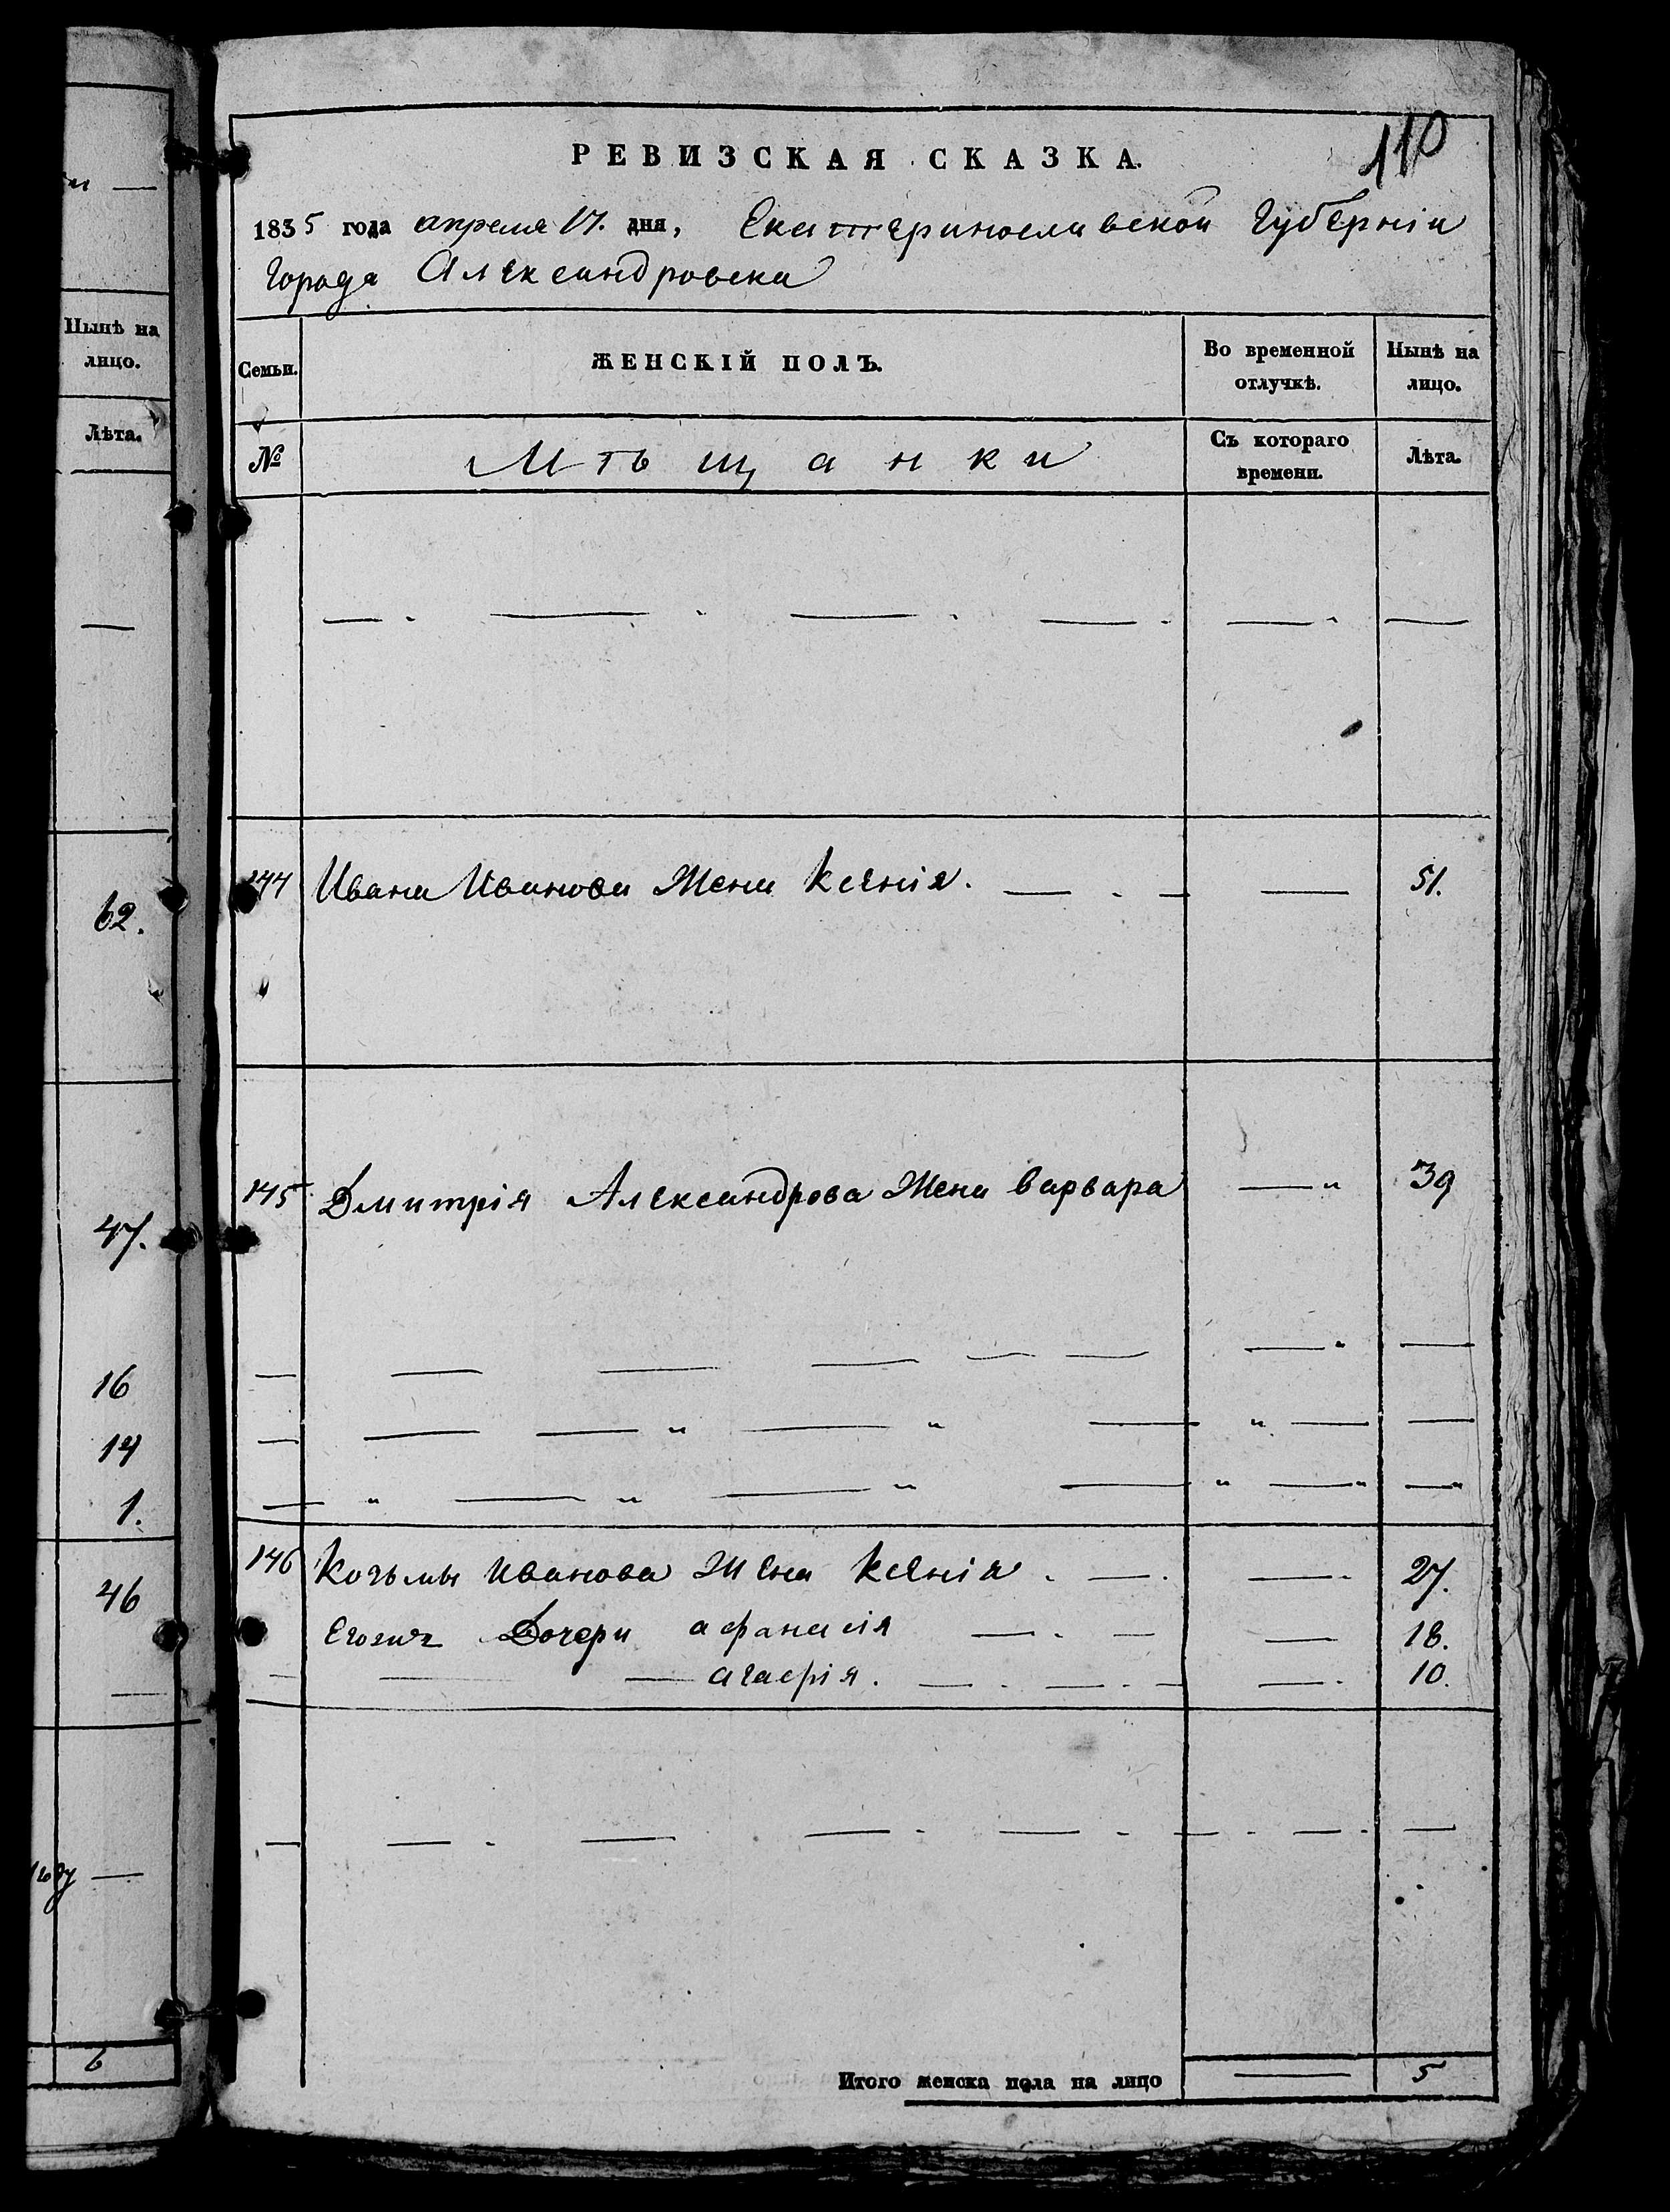 110
РЕВИЗСКАЯ СКАЗКА.
1835 года апреля 17. дня, Екатеринославской Губерніи
Города Александровска
Семьи.
ЖЕНСКІЙ ПОЛЪ.
Во временной отлучкѣ.
Нынѣ на лицо.
№
Мѣщанки
Съ котораго времени.
Лѣта.
144 Ивана Иванова Жена Ксенія. 51.
145 Дмитрія Александрова Жена Варвара 39
146 Козьмы Иванова Жена Ксенія 27.
Дочери афанасія 18.
10.
Итого женска пола на лицо 5
Нынѣ на
лицо.
Лѣта.
62.
47.
16
14
1.
46
6